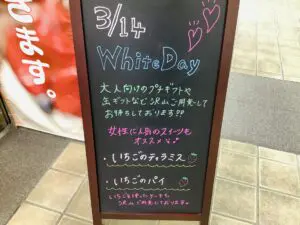 きます。
3/14
White Day
大人向けのプチギフトや
缶ギフトなど沢山ご用意して
お待ちしております!!
女性に人気のスイーツも
オススメ
・いちごのティラミス
・いちごのパイ
いちごを使ったケーキも
沢山ご用意しております。